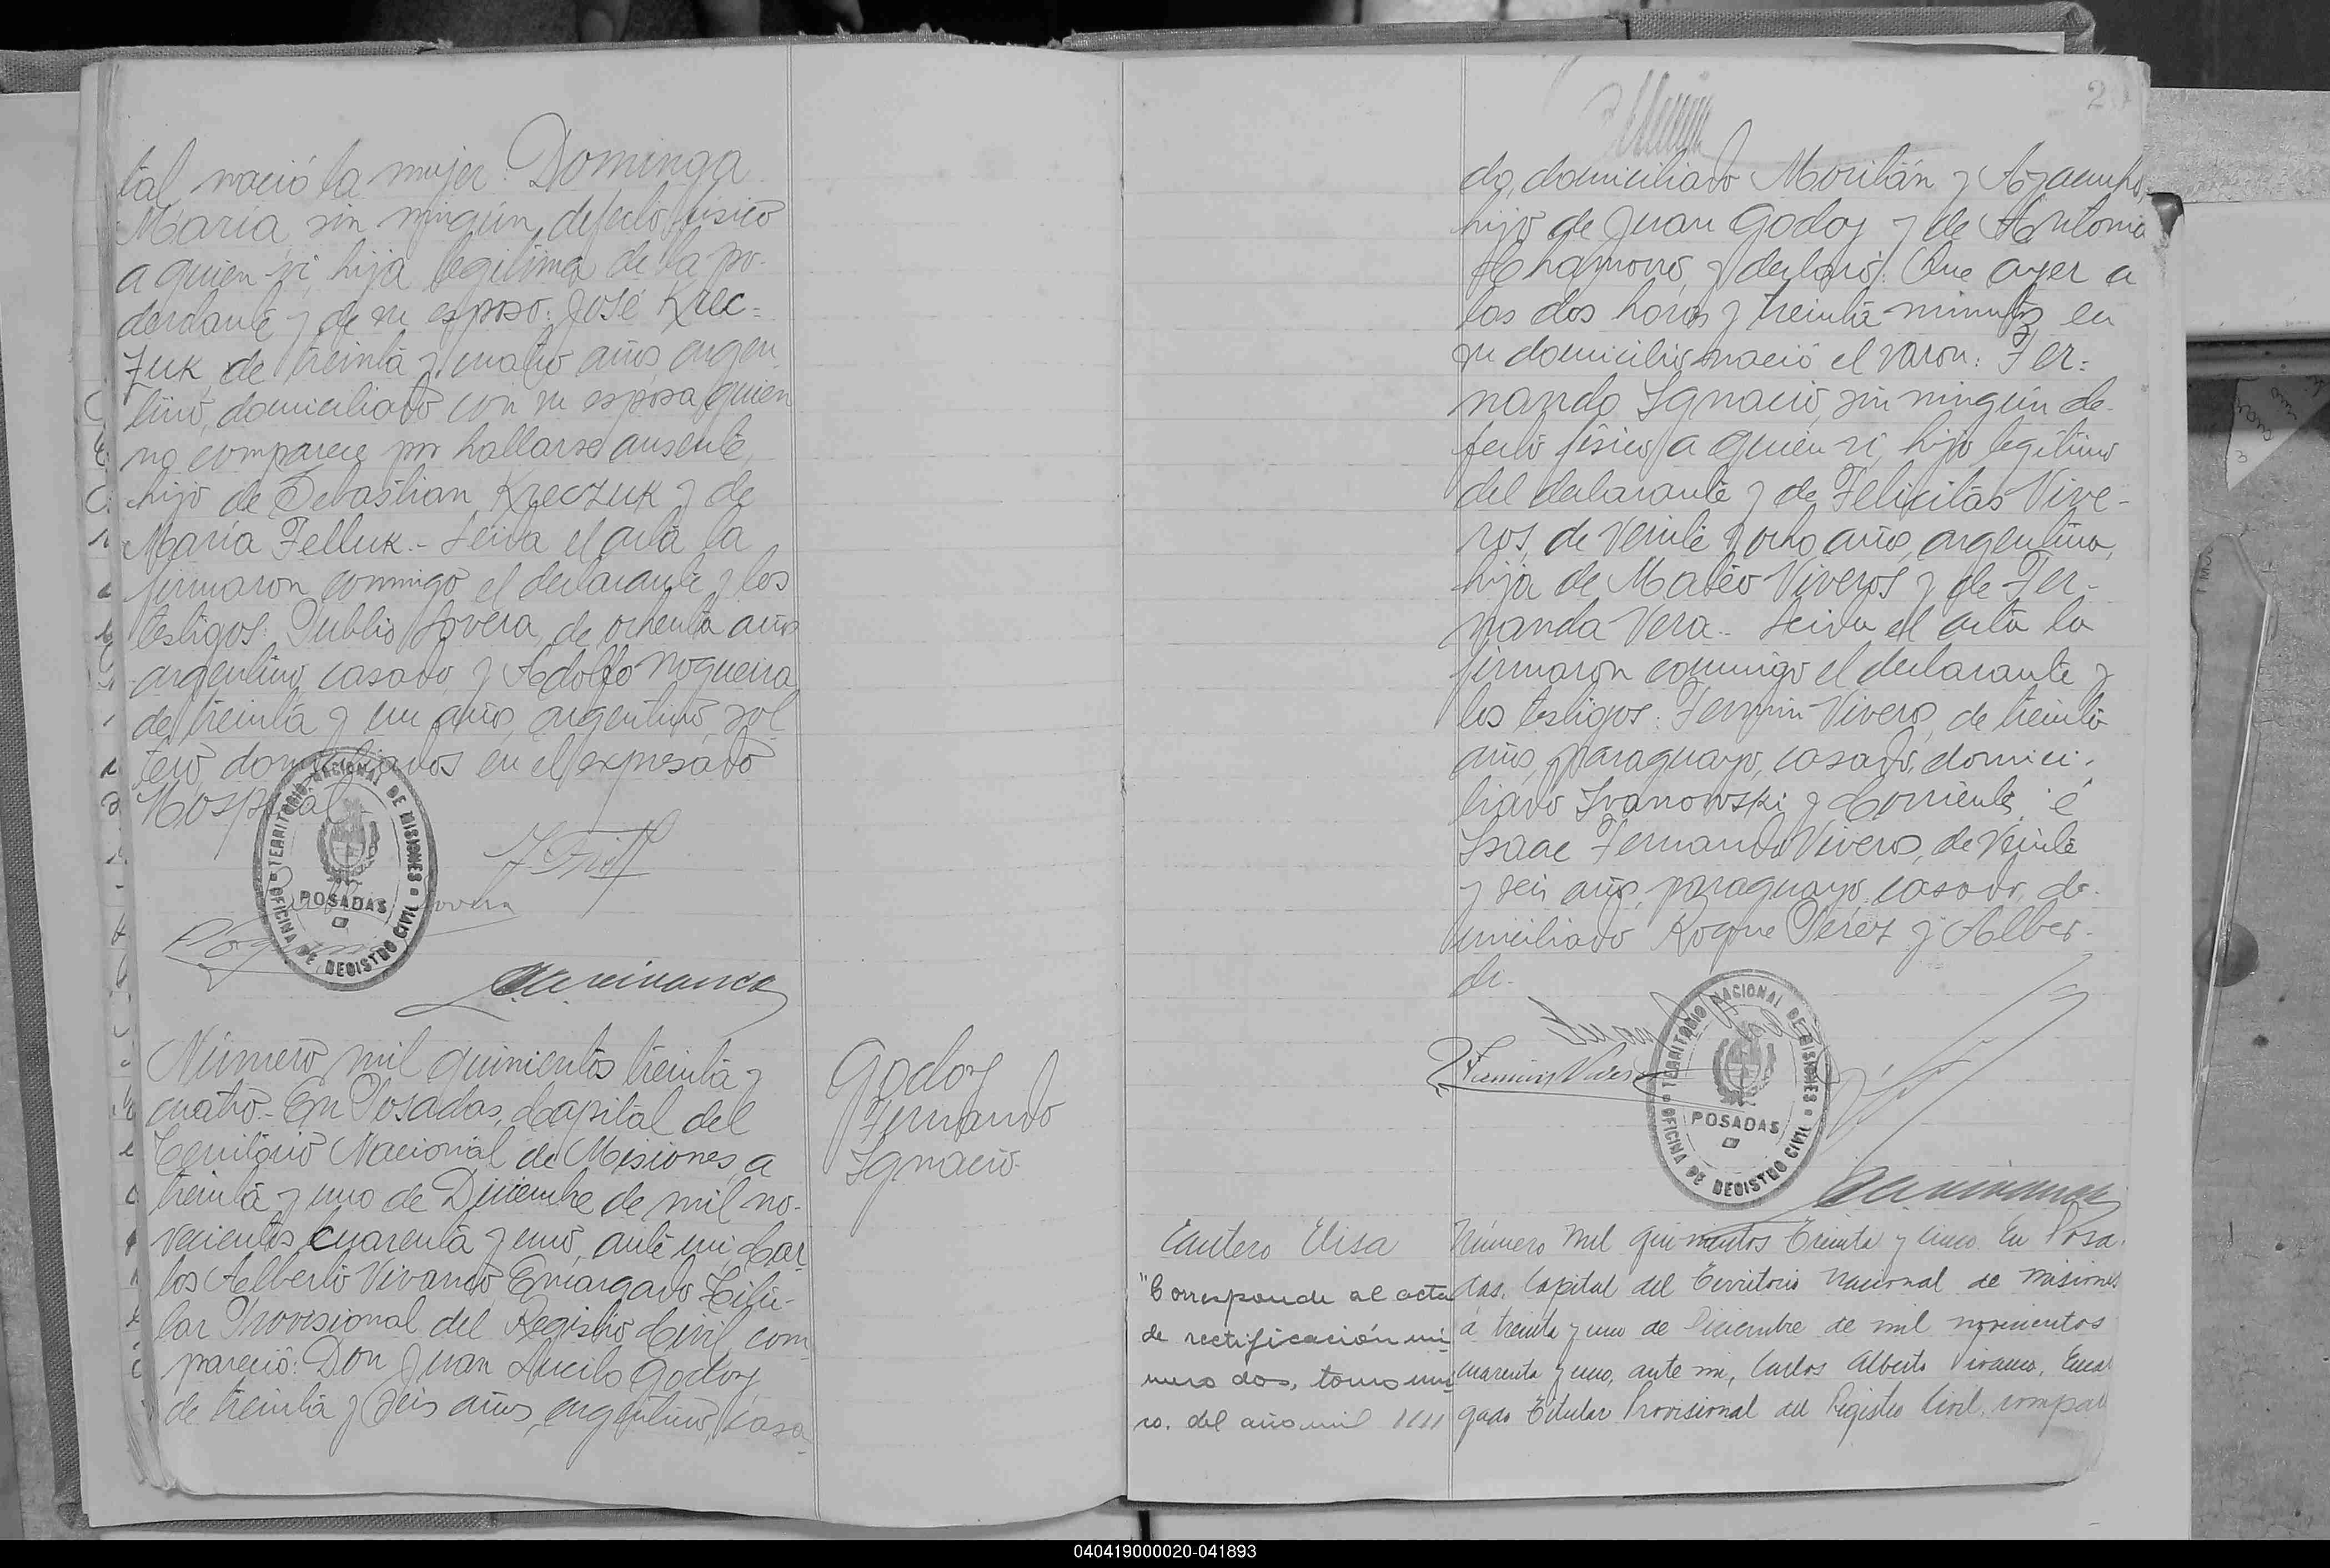 tal nació la mujer: Dominga
María sin ningún defecto físico
a quien ví, hija legítima de la po-
derdante y de su esposo: José Krec-
zuk, de treinta y cuatro años, argen-
tino, domiciliado con su esposa quien
no comparece por hallarse ausente,
hijo de Sebastian Kreczuk y de
María Felluk.- Leida el acta la
firmaron conmigo el declarante y los
testigos: Publio Lovera, de ochenta años
argentino, casado, y Adolfo Nogueira
de treinta y un años, argentino, sol
tero, domiciliados en el expresado
Hospital
TERRITORIO NACIONAL DE MISIONES
POSADAS
OFICINA DE REGISTRO CIVIL
Lovera
Número mil quinientos treinta y
cuatro.- En Posadas, Capital del
Territorio Nacional de Misiones, a
treinta y uno de Diciembre de mil no-
vecientos cuarenta y uno, ante mi, Car-
los Alberto Vivanco, Encargado Titu-
lar Provisional del Registro Civil, com-
pareció: Don Juan Lucilo Godoy
de treinta y seis años, argentino, casa-
Godoy
Fernando
Ignacio.
2
do, domiciliado y
hijo de Juan Godoy y de Antonia
Chamorro, y declaró: Que ayer a
las dos horas y treinta minutos, en
su domicilio nació el varon: Fer-
nando Ignacio, sin ningún de-
fecto físico, a quien ví, hijo legítimo
del declarante y de Felicitas Vive-
ros, de veinte y ocho años, argentina,
hija de Matéo Viveros y de Fer-
nanda Vera.- Leida el acta la
firmaron conmigo el declarante y
los testigos: Fermin Vivero, de treinta
años, paraguayo, casado, domici-
liado Ivanowski y Corrientes, é
Isaac Fernando Vivero, de veinte
y seis años, paraguayo, casado, do-
miciliado Roque Pérez y Alber-
di.
Fermin Vivero
TERRITORIO NACIONAL DE MISIONES
POSADAS
OFICINA DE REGISTRO CIVIL
Cantero Elisa
"Corresponde al acta
de rectificación nú-
mero dos, tomo
ro. del año mil
Número mil quinientos treinta y cinco. En Posa-
das, Capital del Territorio Nacional de Misiones
á treinta y uno de Diciembre de mil novecientos
cuarenta y uno, ante mi, Carlos Alberto Vivanco, Encar
gado Titular Provisional del Registro Civil, compar
040419000020-041893